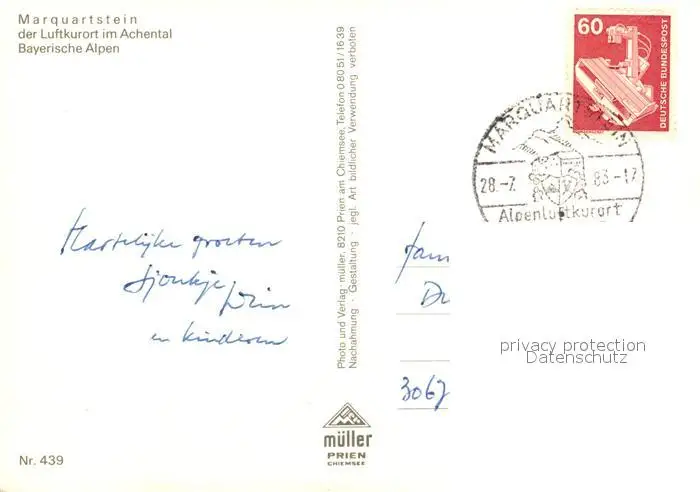 Marquartstein
der Luftkurort im Achental
Bayerische Alpen
60
DEUTSCHE BUNDESPOST
MARQUARTSTEIN
28.-7. 83.-17
Alpenluftkurort
Hartelijke groeten
Sjoukje Wim
en kinderen
Photo und Verlag: müller, 8210 Prien am Chiemsee, Telefon 0 80 51/16 39
Nachahmung · Gestaltung · jegl. Art bildlicher Verwendung verboten
Fam
Dr
3067
privacy protection
Datenschutz
müller
PRIEN
CHIEMSEE
Nr. 439